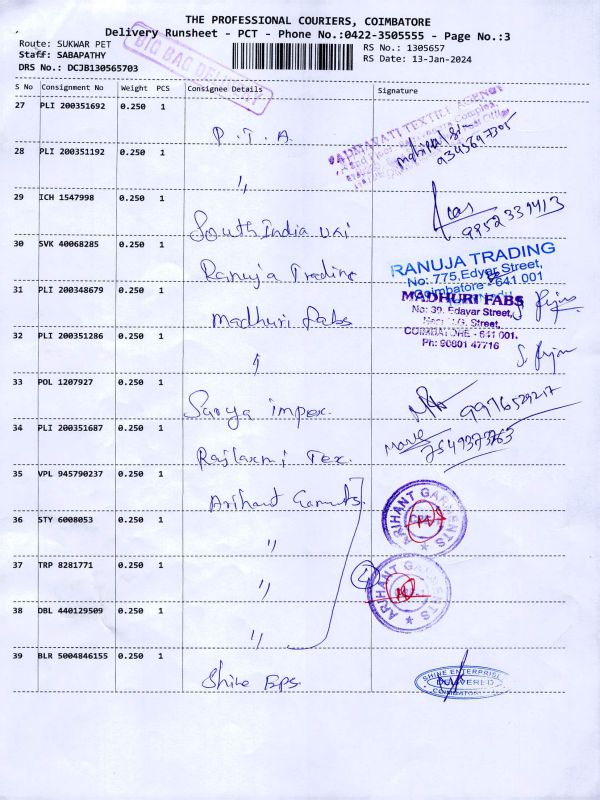 THE PROFESSIONAL COURIERS, COIMBATORE
Delivery Runsheet - PCT - Phone No.:0422-3505555 - Page No.:3
Route: SUKWAR PET
Staff: SABAPATHY
DRS No.: DCJB130565703
BIG BAG DELIVERY
RS No.: 1305657
RS Date: 13-Jan-2024
S No Consignment No Weight PCS Consignee Details Signature
27 PLI 200351692 0.250 1
P.T.A.
28 PLI 200351192 0.250 1
"
29 ICH 1547998 0.250 1
South India
9952339413
30 SVK 40068285 0.250 1
Ranuja Trading
RANUJA TRADING
No: 775, Edyar Street,
Coimbatore - 641 001
31 PLI 200348679 0.250 1
Madhuri fabs
MADHURI FABS
No: 39, Edayar Street,
Street,
COIMBATORE - 641 001.
Ph: 90801 47716
32 PLI 200351286 0.250 1
"
33 POL 1207927 0.250 1
Surya impex.
9976529217
34 PLI 200351687 0.250 1
Rajlaxmi Tex.
7549373763
35 VPL 945790237 0.250 1
Arihant Garments
ARIHANT GARMENTS
CBE
36 STY 6008053 0.250 1
"
37 TRP 8281771 0.250 1
"
4
ARIHANT GARMENTS
38 DBL 440129509 0.250 1
"
39 BLR 5004846155 0.250 1
Shine Eps.
SHINE ENTERPRISE
DELIVERED
COIMBATORE